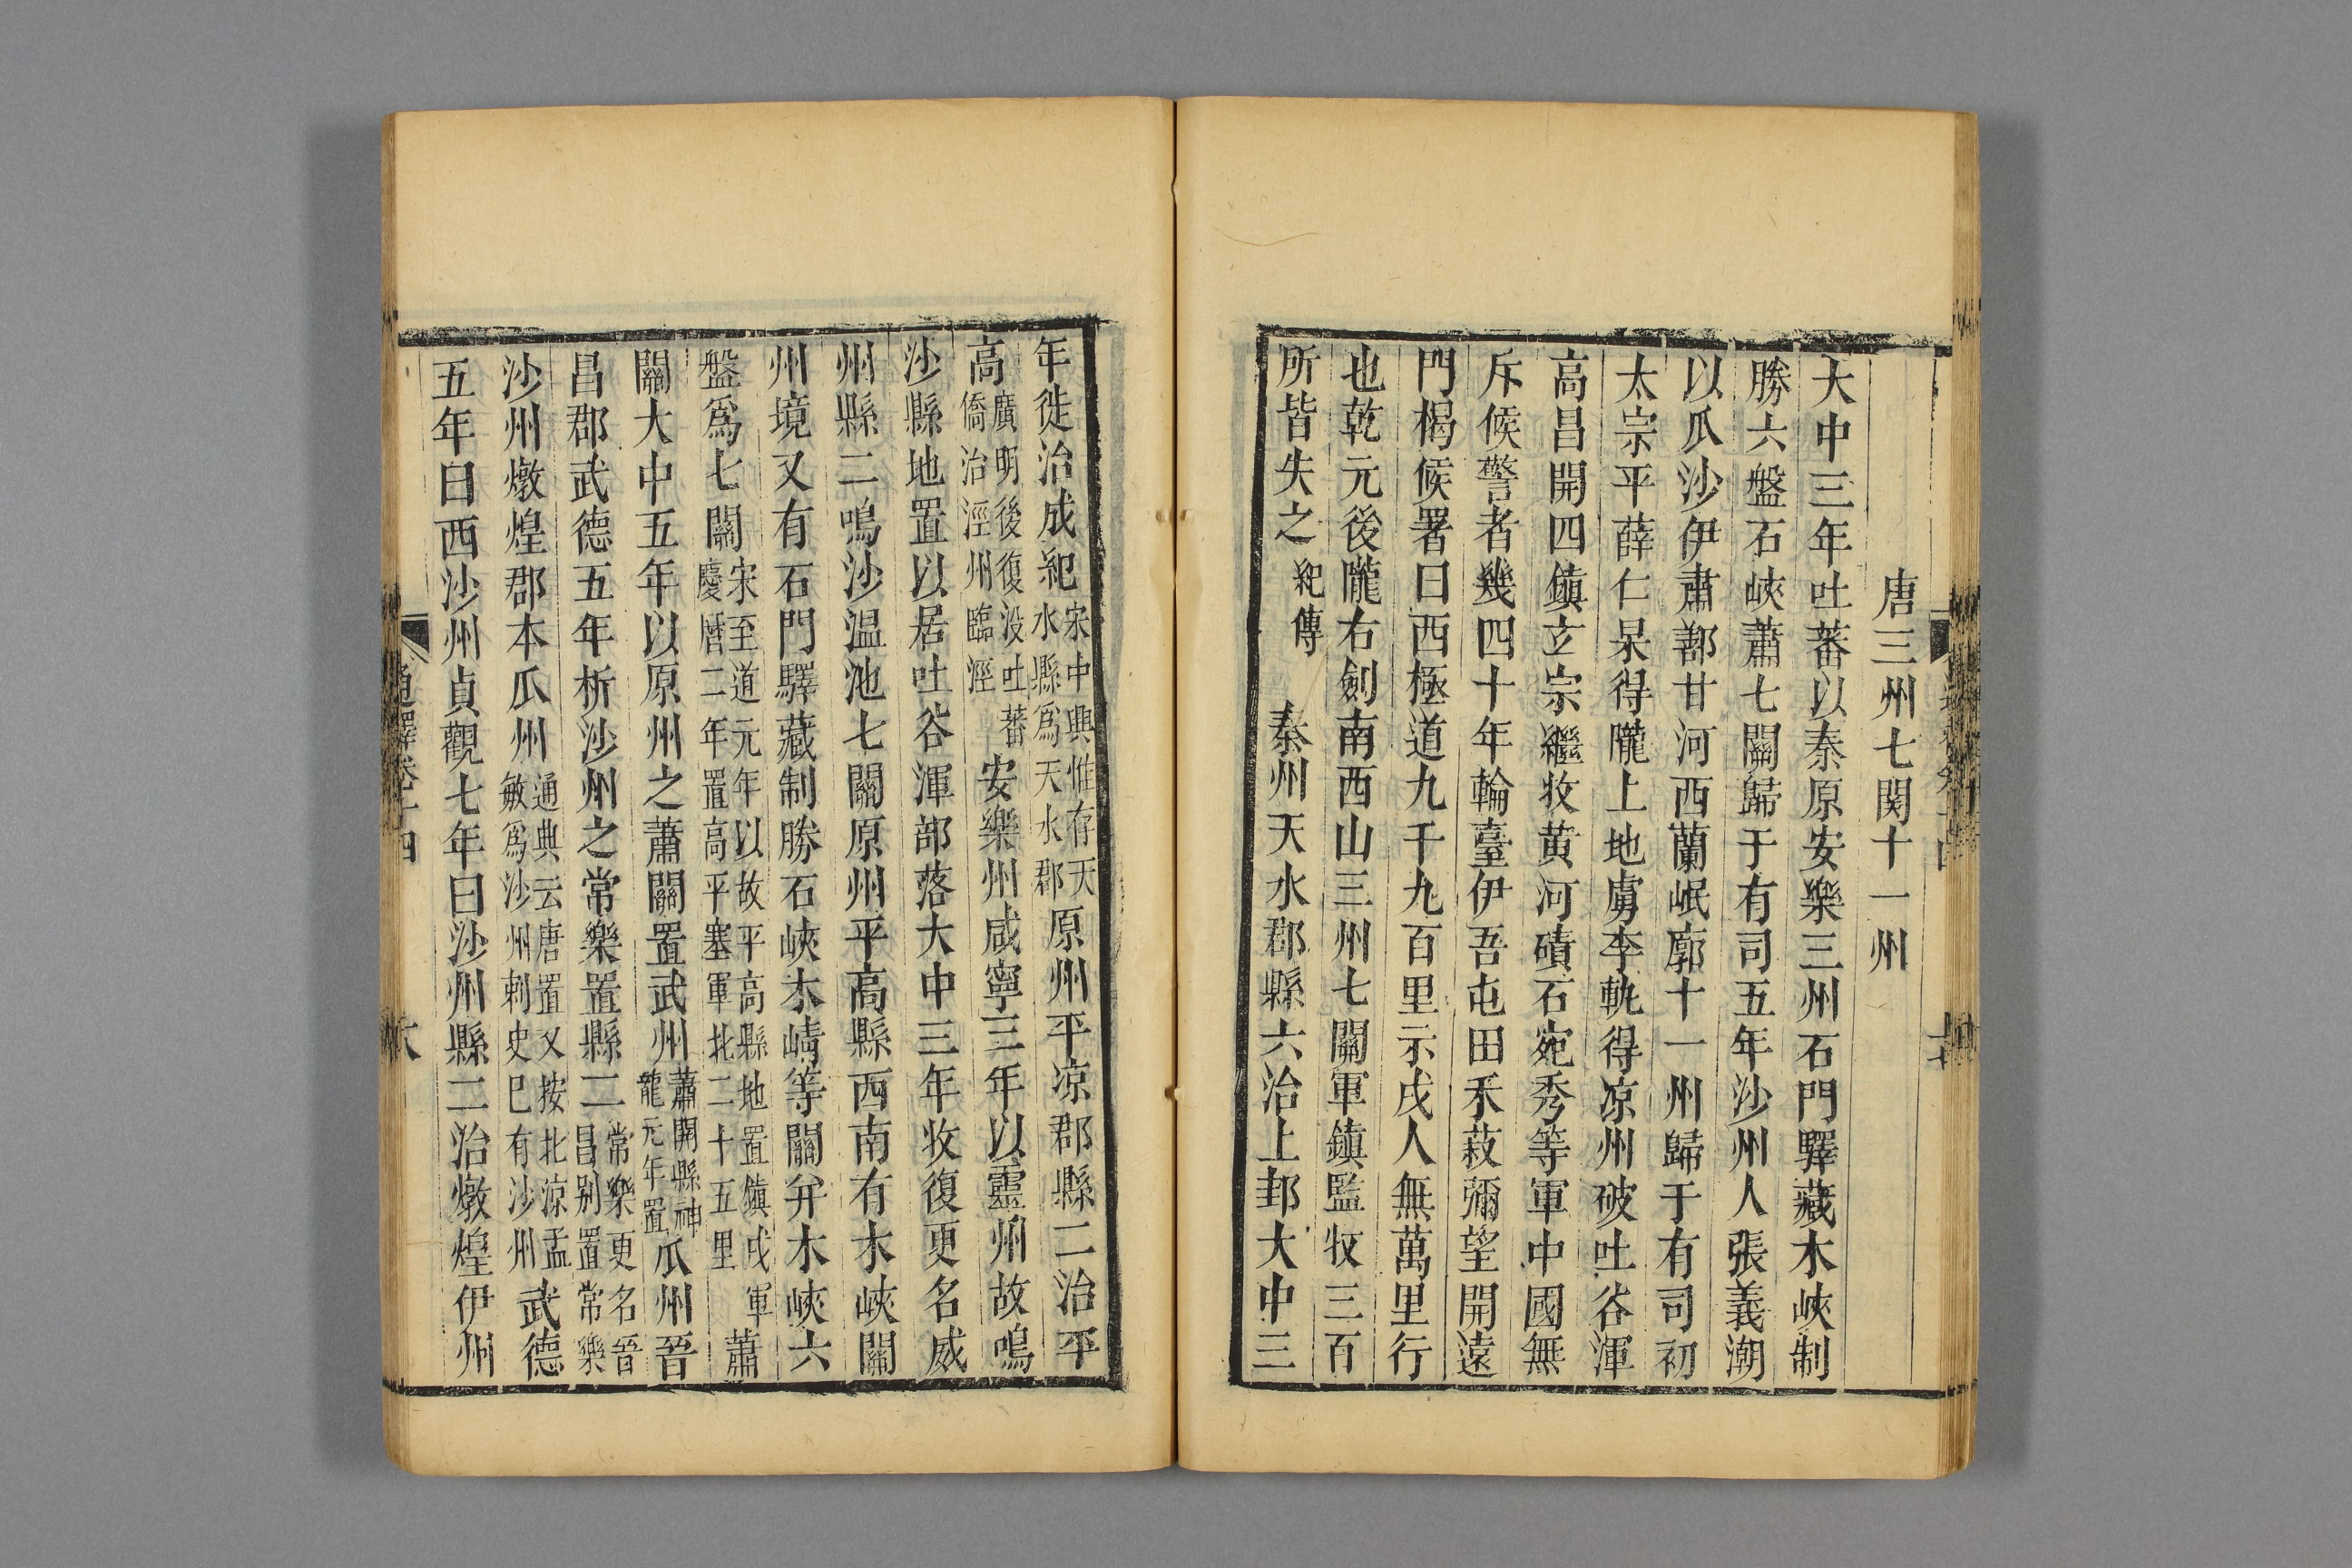 唐三州七関十一州
大中三年吐蕃以秦原安樂三州石門驛藏木峽制
勝六盤石峽蕭七關歸于有司五年沙州人張義潮
以瓜沙伊肅鄯甘河西蘭岷廓十一州歸于有司初
太宗平薛仁杲得隴上地虜李軌得凉州破吐谷渾
高昌開四鎮玄宗繼收黄河磧石宛秀等軍中國無
斥候警者幾四十年輪臺伊吾屯田禾菽彌望開遠
門楬候署曰西極道九千九百里示戍人無萬里行
也乾元後隴右劍南西山三州七關軍鎮監牧三百
所皆失之
紀傳
秦州天水郡縣六治上邽大中三
年徙治成紀
宋中興惟存天
水縣爲天水郡
原州平凉郡縣二治平
高
廣明後復没吐蕃
僑治涇州臨涇
安樂州咸寧三年以靈州故鳴
沙縣地置以居吐谷渾部落大中三年收復更名威
州縣二鳴沙温池七關原州平高縣西南有木峽關
州境又有石門驛藏制勝石峽木崝等關并木峽六
盤爲七關
宋至道元年以故平高縣地置鎮戎軍
慶曆二年置高平塞軍北二十五里
蕭
關大中五年以原州之蕭關置武州
蕭關縣神
龍元年置
瓜州晉
昌郡武德五年析沙州之常樂置縣二
常樂更名晉
昌别置常樂
沙州燉煌郡本瓜州
通典云唐置又按北涼孟
敏爲沙州刺史巳有沙州
武德
五年曰西沙州貞觀七年曰沙州縣二治燉煌伊州
通釋卷十四
六